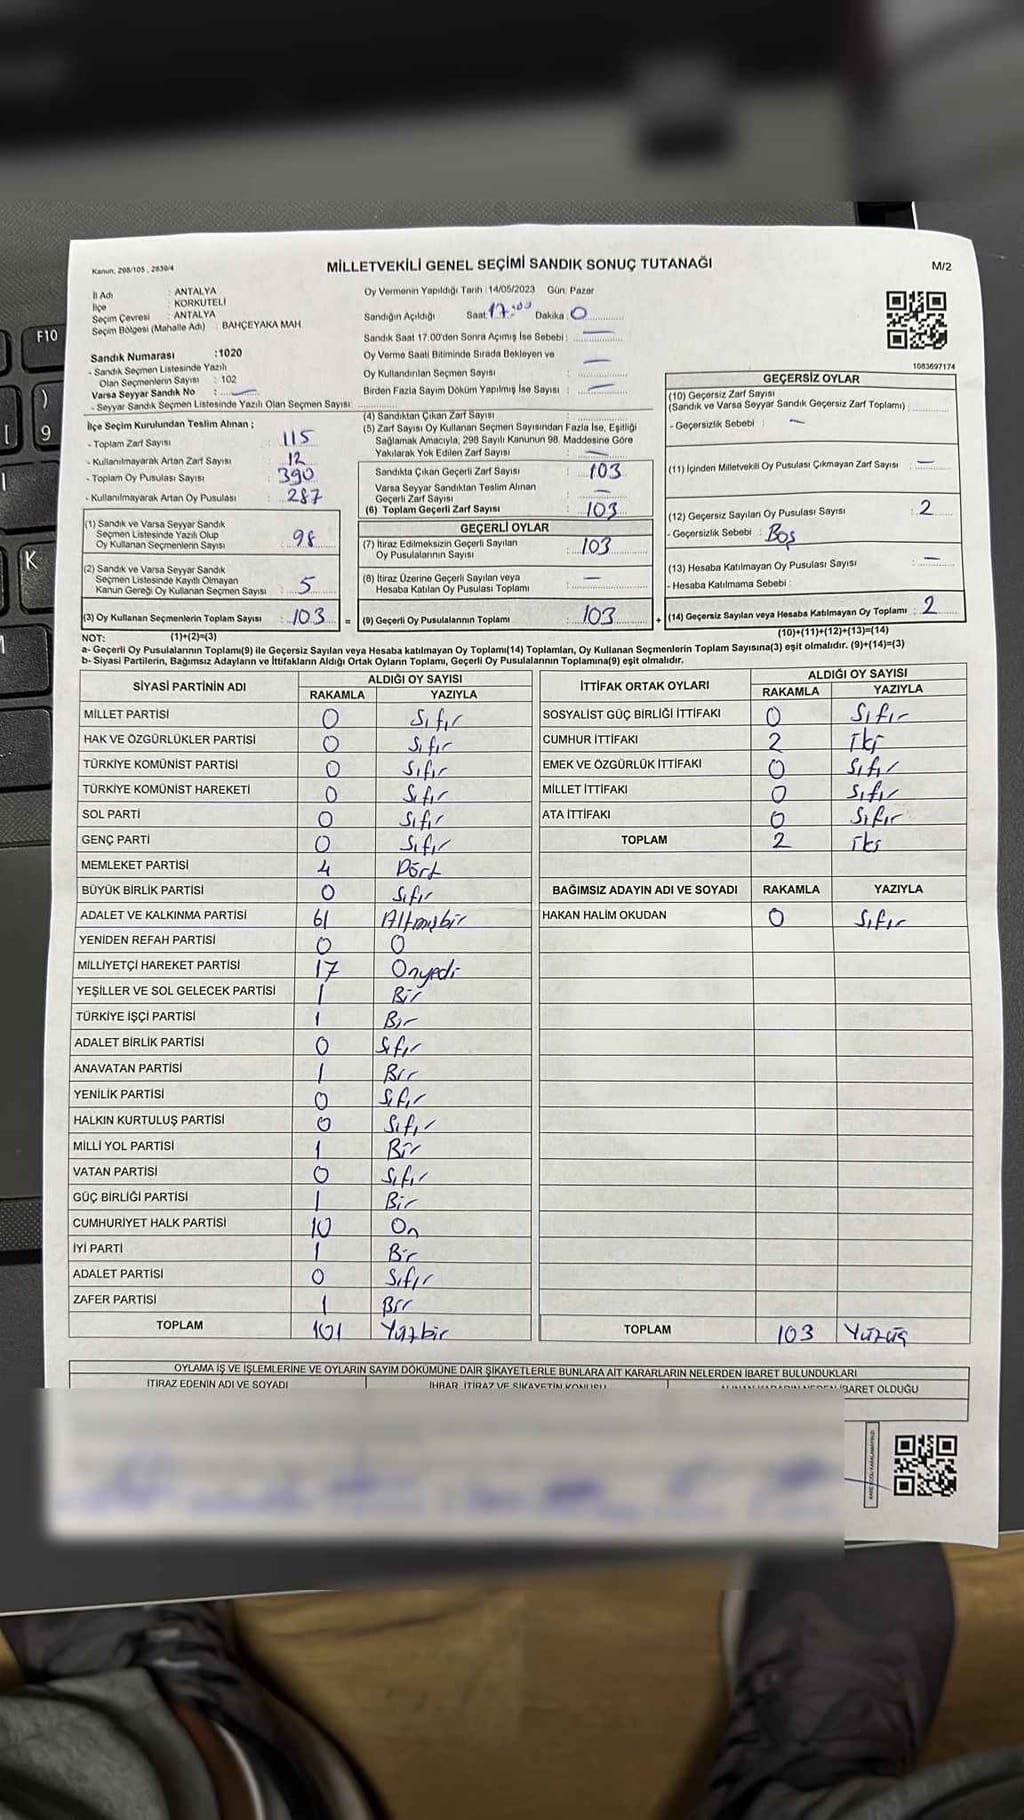 Kanun, 298/105 , 2839/4
MİLLETVEKİLİ GENEL SEÇİMİ SANDIK SONUÇ TUTANAĞI
M/2
İl Adı : ANTALYA
İlçe : KORKUTELİ
Seçim Çevresi : ANTALYA
Seçim Bölgesi (Mahalle Adı) : BAHÇEYAKA MAH.
Sandık Numarası :1020
- Sandık Seçmen Listesinde Yazılı
Olan Seçmenlerin Sayısı : 102
Varsa Seyyar Sandık No : —
- Seyyar Sandık Seçmen Listesinde Yazılı Olan Seçmen Sayısı:
İlçe Seçim Kurulundan Teslim Alınan ;
- Toplam Zarf Sayısı : 115
- Kullanılmayarak Artan Zarf Sayısı : 12
- Toplam Oy Pusulası Sayısı : 390
- Kullanılmayarak Artan Oy Pusulası : 287
(1) Sandık ve Varsa Seyyar Sandık
Seçmen Listesinde Yazılı Olup
Oy Kullanan Seçmenlerin Sayısı : 98
(2) Sandık ve Varsa Seyyar Sandık
Seçmen Listesinde Kayıtlı Olmayan
Kanun Gereği Oy Kullanan Seçmen Sayısı : 5
(3) Oy Kullanan Seçmenlerin Toplam Sayısı : 103 =
Oy Vermenin Yapıldığı Tarih :14/05/2023 Gün: Pazar
Sandığın Açıldığı Saat: 17:00 Dakika : 0
Sandık Saat 17.00'den Sonra Açımış İse Sebebi : —
Oy Verme Saati Bitiminde Sırada Bekleyen ve
Oy Kullandırılan Seçmen Sayısı : —
Birden Fazla Sayım Döküm Yapılmış İse Sayısı : —
(4) Sandıktan Çıkan Zarf Sayısı :
(5) Zarf Sayısı Oy Kullanan Seçmen Sayısından Fazla İse, Eşitliği
Sağlamak Amacıyla, 298 Sayılı Kanunun 98. Maddesine Göre
Yakılarak Yok Edilen Zarf Sayısı : —
Sandıkta Çıkan Geçerli Zarf Sayısı : 103
Varsa Seyyar Sandıktan Teslim Alınan
Geçerli Zarf Sayısı : —
(6) Toplam Geçerli Zarf Sayısı : 103
GEÇERLİ OYLAR
(7) İtiraz Edilmeksizin Geçerli Sayılan
Oy Pusulalarının Sayısı : 103
(8) İtiraz Üzerine Geçerli Sayılan veya
Hesaba Katılan Oy Pusulası Toplamı : —
(9) Geçerli Oy Pusulalarının Toplamı : 103 +
1083697174
GEÇERSİZ OYLAR
(10) Geçersiz Zarf Sayısı
(Sandık ve Varsa Seyyar Sandık Geçersiz Zarf Toplamı) :
- Geçersizlik Sebebi : —
(11) İçinden Milletvekili Oy Pusulası Çıkmayan Zarf Sayısı : —
(12) Geçersiz Sayılan Oy Pusulası Sayısı : 2
- Geçersizlik Sebebi : Boş
(13) Hesaba Katılmayan Oy Pusulası Sayısı : —
- Hesaba Katılmama Sebebi :
(14) Geçersiz Sayılan veya Hesaba Katılmayan Oy Toplamı : 2
NOT: (1)+(2)=(3) (10)+(11)+(12)+(13)=(14)
a- Geçerli Oy Pusulalarının Toplamı(9) ile Geçersiz Sayılan veya Hesaba katılmayan Oy Toplamı(14) Toplamları, Oy Kullanan Seçmenlerin Toplam Sayısına(3) eşit olmalıdır. (9)+(14)=(3)
b- Siyasi Partilerin, Bağımsız Adayların ve İttifakların Aldığı Ortak Oyların Toplamı, Geçerli Oy Pusulalarının Toplamına(9) eşit olmalıdır.
SİYASİ PARTİNİN ADI ALDIĞI OY SAYISI
RAKAMLA YAZIYLA
MİLLET PARTİSİ 0 Sıfır
HAK VE ÖZGÜRLÜKLER PARTİSİ 0 Sıfır
TÜRKİYE KOMÜNİST PARTİSİ 0 Sıfır
TÜRKİYE KOMÜNİST HAREKETİ 0 Sıfır
SOL PARTİ 0 Sıfır
GENÇ PARTİ 0 Sıfır
MEMLEKET PARTİSİ 4 Dört
BÜYÜK BİRLİK PARTİSİ 0 Sıfır
ADALET VE KALKINMA PARTİSİ 61 Altmışbir
YENİDEN REFAH PARTİSİ 0 0
MİLLİYETÇİ HAREKET PARTİSİ 17 Onyedi
YEŞİLLER VE SOL GELECEK PARTİSİ 1 Bir
TÜRKİYE İŞÇİ PARTİSİ 1 Bir
ADALET BİRLİK PARTİSİ 0 Sıfır
ANAVATAN PARTİSİ 1 Bir
YENİLİK PARTİSİ 0 Sıfır
HALKIN KURTULUŞ PARTİSİ 0 Sıfır
MİLLİ YOL PARTİSİ 1 Bir
VATAN PARTİSİ 0 Sıfır
GÜÇ BİRLİĞİ PARTİSİ 1 Bir
CUMHURİYET HALK PARTİSİ 10 On
İYİ PARTİ 1 Bir
ADALET PARTİSİ 0 Sıfır
ZAFER PARTİSİ 1 Bir
TOPLAM 101 Yüzbir
İTTİFAK ORTAK OYLARI ALDIĞI OY SAYISI
RAKAMLA YAZIYLA
SOSYALİST GÜÇ BİRLİĞİ İTTİFAKI 0 Sıfır
CUMHUR İTTİFAKI 2 İki
EMEK VE ÖZGÜRLÜK İTTİFAKI 0 Sıfır
MİLLET İTTİFAKI 0 Sıfır
ATA İTTİFAKI 0 Sıfır
TOPLAM 2 İki
BAĞIMSIZ ADAYIN ADI VE SOYADI RAKAMLA YAZIYLA
HAKAN HALİM OKUDAN 0 Sıfır
TOPLAM 103 Yüzüç
OYLAMA İŞ VE İŞLEMLERİNE VE OYLARIN SAYIM DÖKÜMÜNE DAİR ŞİKAYETLERLE BUNLARA AİT KARARLARIN NELERDEN İBARET BULUNDUKLARI
İTİRAZ EDENİN ADI VE SOYADI İHBAR, İTİRAZ VE ŞİKAYETİN KONUSU İBARET OLDUĞU
F10
)
[ 9
K